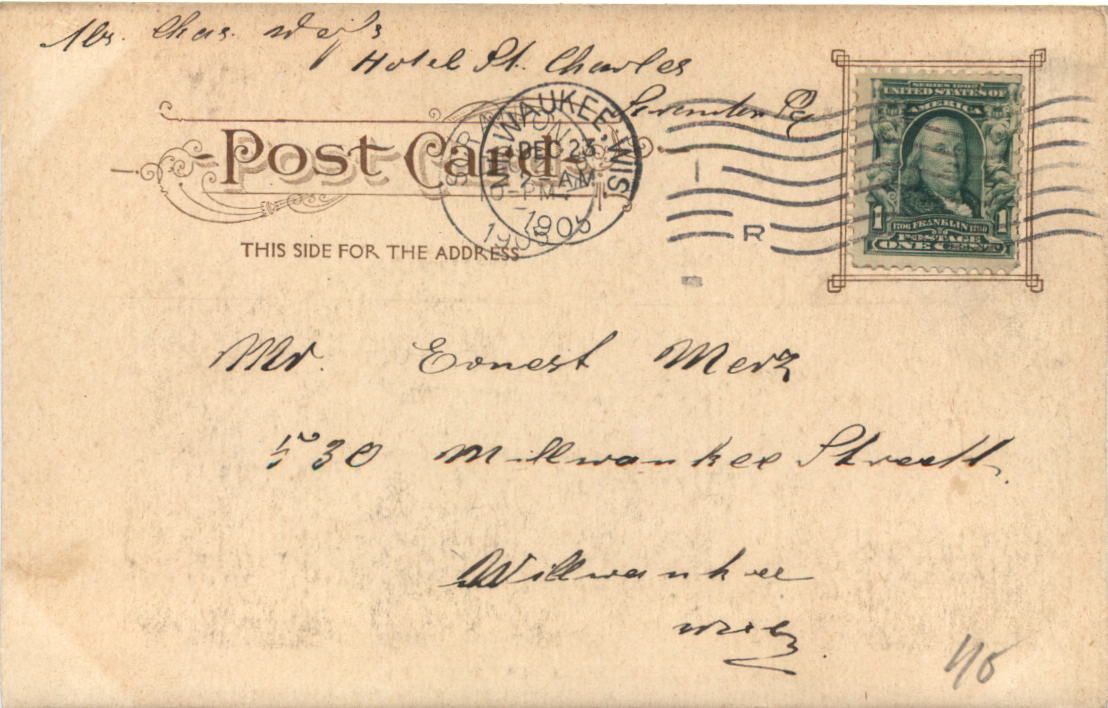 Mr. Chas. Weiss
Hotel St. Charles
Scranton Pa
SERIES 1902
UNITED STATES OF
AMERICA
1 1
1706 FRANKLIN 1790
POSTAGE
ONE CENT
MILWAUKEE, WIS.
DEC 23
2 AM
1905
1905
R
Post Card
THIS SIDE FOR THE ADDRESS
Mr. Ernest Merz
530 Millwaukee Streett.
Millwaukee